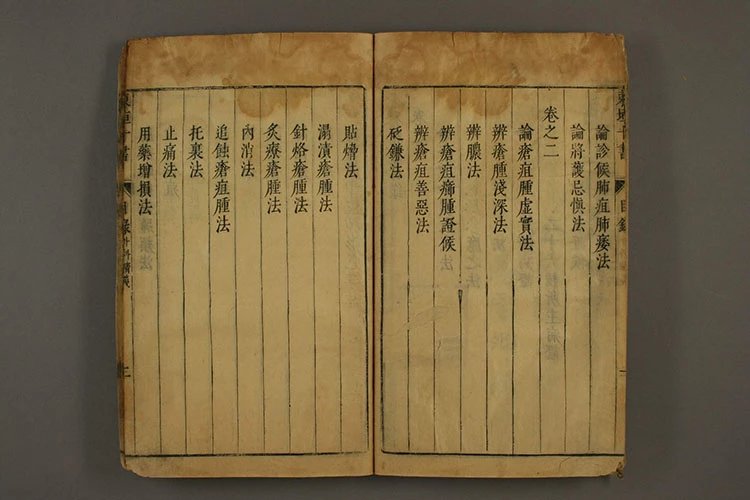 東垣十書 目錄
論診候肺疽肺痿法
論將護忌慎法
卷之二
論瘡疽腫虛實法
辨瘡疽腫淺深法
辨膿法
辨瘡疽癤腫證候
辨瘡疽善惡法
砭鎌法
貼熁法
溻漬瘡腫法
針烙瘡腫法
灸療瘡腫法
內消法
追蝕瘡疽腫法
托裏法
止痛法
用藥增損法
東垣十書 目錄 外科精義 二